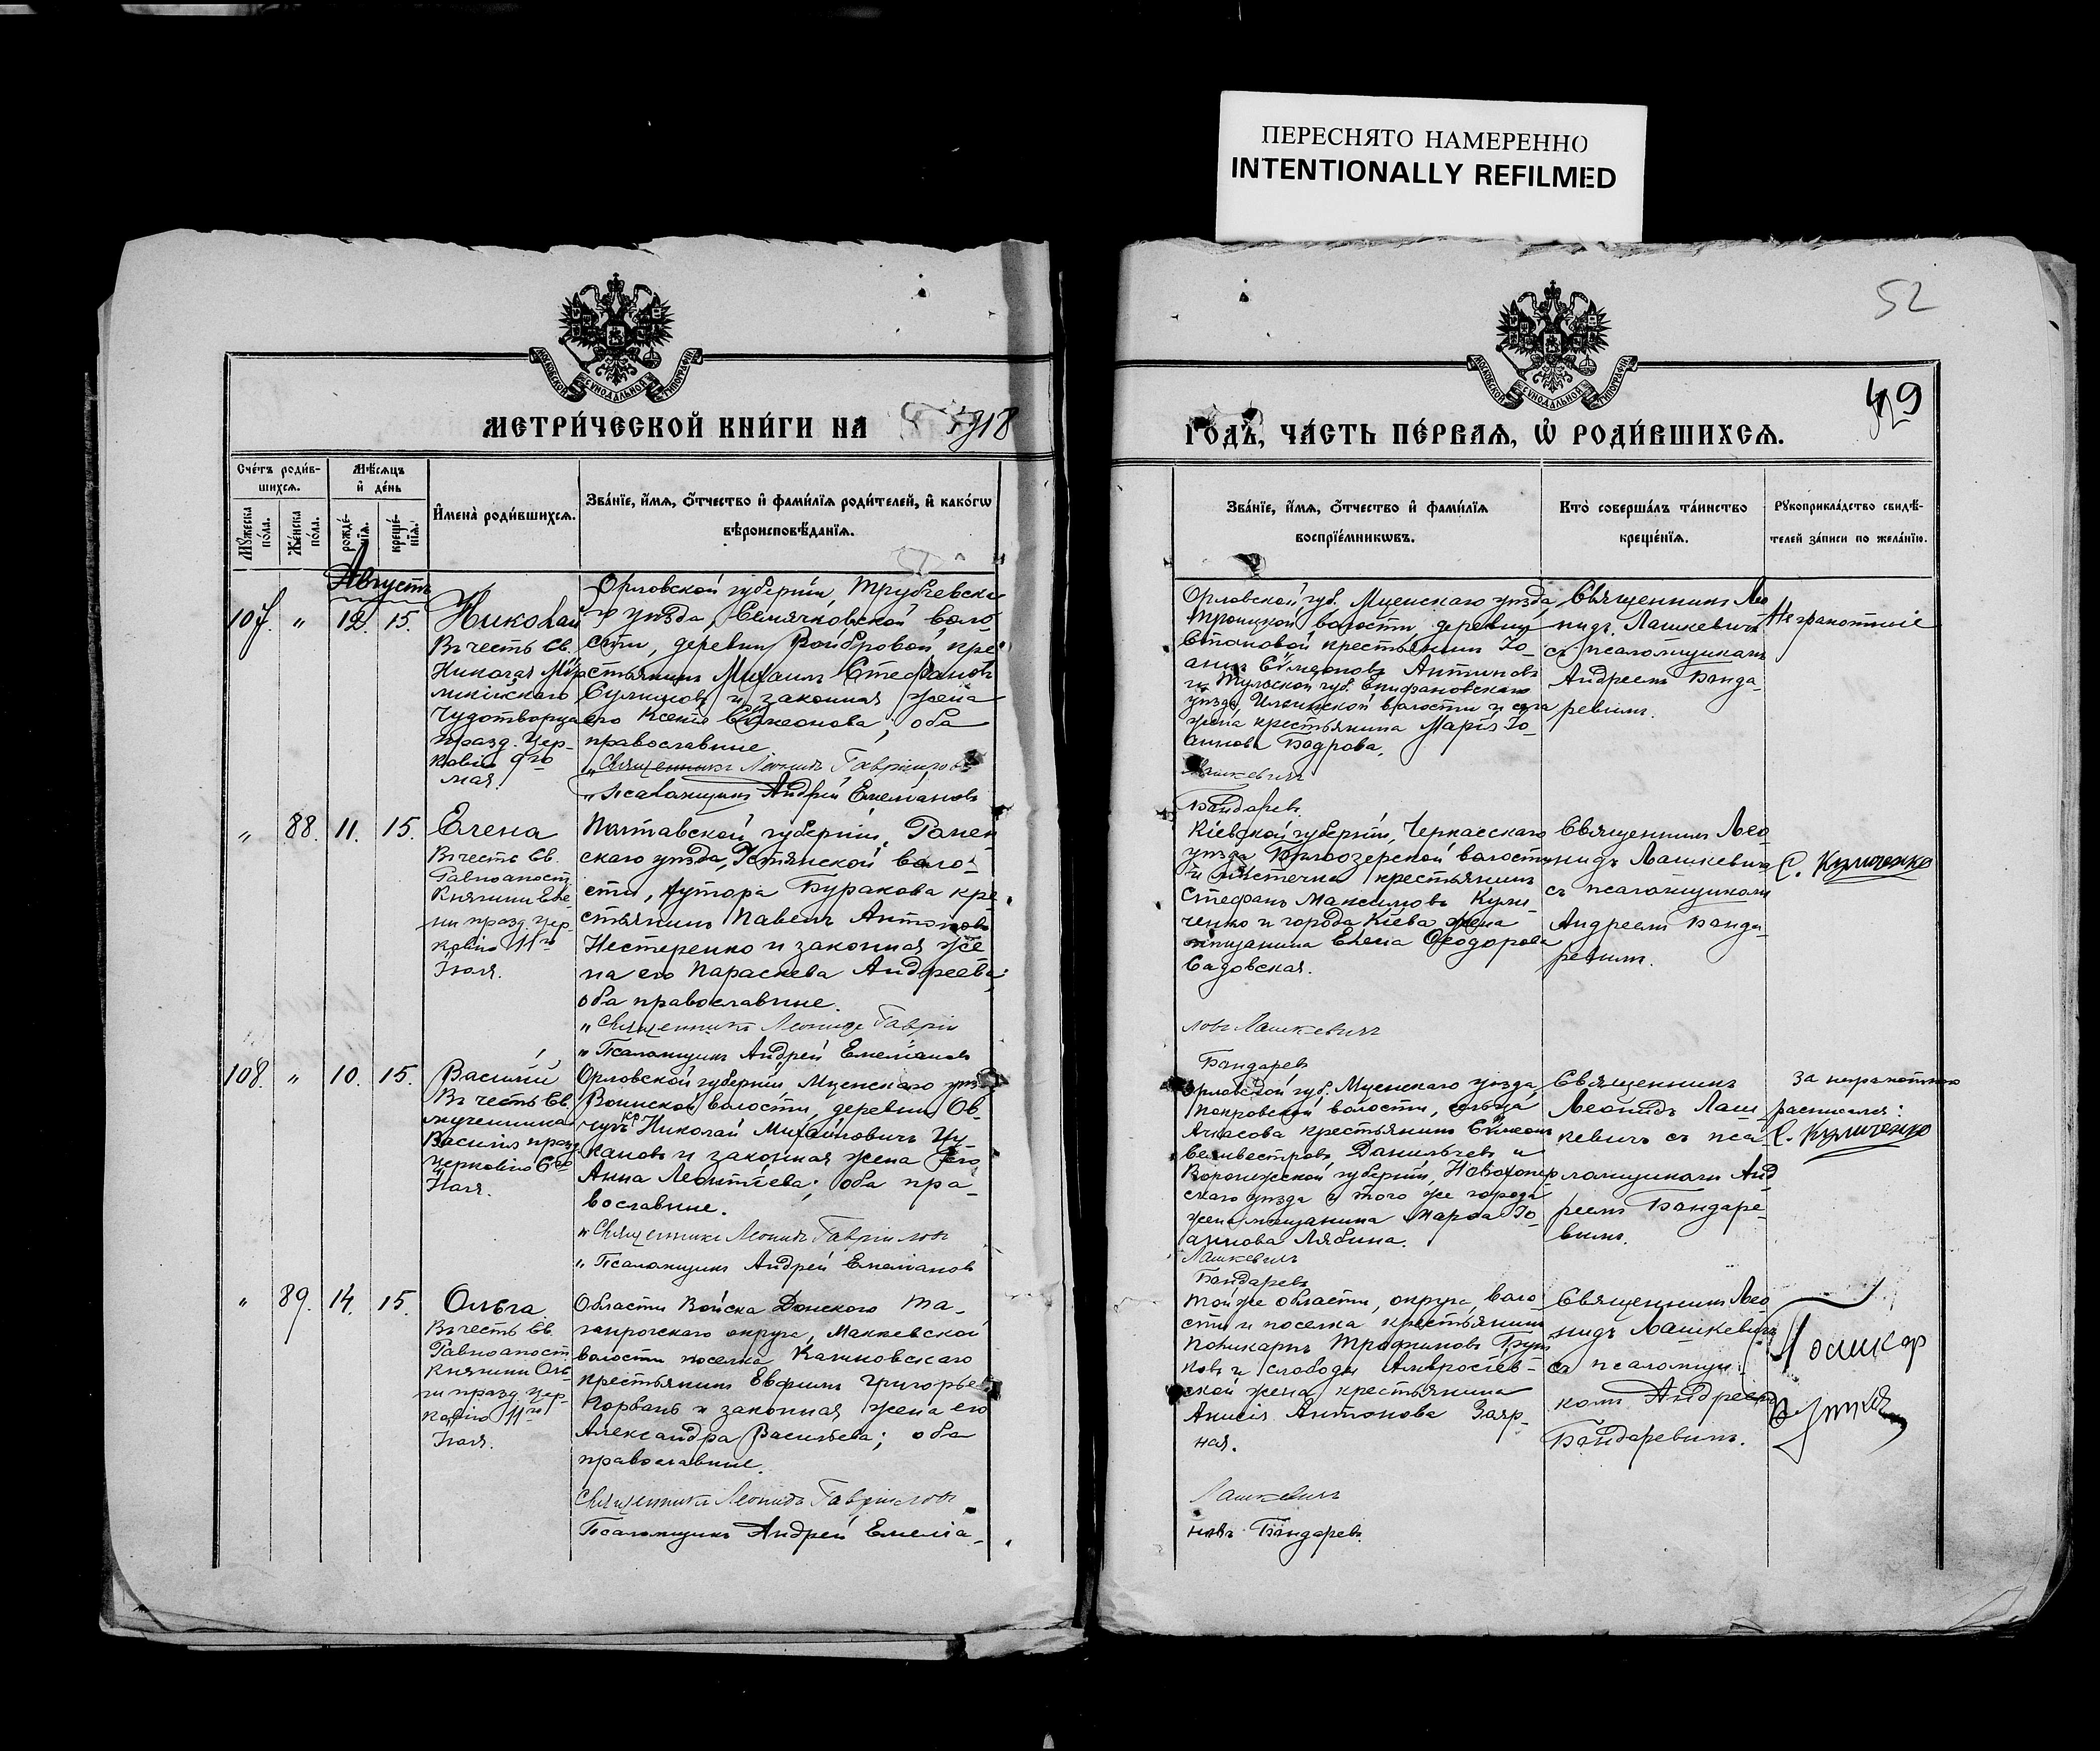 ПЕРЕСНЯТО НАМЕРЕННО
INTENTIONALLY REFILMED
52
МОСКОВСКОЙ СѴНОДАЛЬНОЙ ТИПОГРАФІИ
МОСКОВСКОЙ СѴНОДАЛЬНОЙ ТИПОГРАФІИ
49
МЕТРИ́ЧЕСКОЙ КНИ́ГИ НА 1918
ГОДЪ, ЧА́СТЬ ПЕ́РВАЯ, Ѡ РОДИ́ВШИХСЯ.
Сче́тъ роди́в-
шихся.
Мѣ́сяцъ
и де́нь
Му́жеска по́ла.
Же́нска по́ла.
рожде́-
нія.
креще́-
нія.
Имена̀ роди́вшихся.
Зва́ніе, и́мя, о́тчество и фами́лія роди́телей, и како́гѡ
вѣроисповѣ́данія.
Зва́ніе, и́мя, о́тчество и фами́лія
воспріе́мникѡвъ.
Кто̀ соверша́лъ та́инство
креще́нія.
Рукоприкла́дство свидѣ́-
телей за́писи по жела́нію.
Августъ
107. " 12. 15.
Николай
Въ честь Св.
Николая Мѵр
ликійскаго
Чудотворца
празд. Цер-
ковію 9го
мая.
Орловской губерніи, Трубчевска
го уѣзда, Семячковской воло-
сти, деревни кре-
стьянинъ Михаилъ Стефановъ
и законная жена
его Ксенія Сѵмеонова; оба
православные.
"Священникъ Леонидъ Гавріиловъ
"Псаломщикъ Андрей Емеліановъ
Орловской губ. Мценскаго уѣзда
Троицкой волости деревни
крестьянинъ Іо-
аннъ Сѵмеоновъ Антиповъ
и Тульской губ. Епифановскаго
уѣзда, волости и села
жена крестьянина Марія Іо-
аннова Бодрова.
Лашкевичъ
Бондаревъ.
Священникъ Лео
нидъ Лашкевичъ
съ псаломщикомъ
Андреемъ Бонда-
ревымъ.
Неграмотные
" 88. 11. 15.
Елена
Въ честь Св.
Равноапост
Княгини Еле-
ны празд. Цер-
ковію 11го
Іюля.
Полтавской губерніи, Ромен
скаго уѣзда, волo-
сти, хутора Буракова кре-
стьянинъ Павелъ Антоновъ
Нестеренко и законная же
на его Параскева Андреева;
оба православные.
"Священникъ Леонидъ Гавріи
"Псаломщикъ Андрей Емеліановъ
Кіевской губерніи, Черкасскаго
уѣзда Бѣлозерской волости
и мѣстечка крестьянинъ
Стефанъ Максимовъ Кули-
ченко и города Кіева жена
мѣщанина Елена Ѳеодорова
Садовская.
ловъ Лашкевичъ
Бондаревъ
Священникъ Лео
нидъ Лашкевичъ
съ псаломщикомъ
Андреемъ Бонда-
ревымъ.
С. Куличенко
108. " 10. 15.
Василій
Въ честь Св.
мученика
Василія празд.
Церковію 6го
Іюля.
Орловской губерніи, Мценскаго уѣзда
Воинской волости, деревни Ов-
Николай Михайловичъ Цу-
кановъ и законная жена его
Анна Леонтіева; оба пра-
вославные.
"Священникъ Леонидъ Гавріиловъ
"Псаломщикъ Андрей Емеліановъ
Орловской губ. Мценскаго уѣзда
Покровской волости, сельца
крестьянинъ Сѵмеонъ
Селивестровъ Данильчевъ и
Воронежской губерніи, Новохопер
скаго уѣзда и того же города
жена мѣщанина Марѳа Іо-
аннова Лябина.
Лашкевичъ
Бондаревъ
Священникъ
Леонидъ Лаш
кевичъ съ пса-
ломщикомъ Анд
реемъ Бондаре-
вымъ.
за неграмотныхъ
росписался:
С. Куличенко
" 89. 14. 15.
Ольга
Въ честь Св.
Равноапост
княгини Оль-
ги празд Цер-
ковію 11го
Іюля.
Области Войска Донского Та-
ганрогскаго округа, Макеевской
волости поселка Калиновскаго
крестьянинъ Евфимъ Григорьев
Горбань и законная жена его
Александра Васильева; оба
православные.
Священникъ Леонидъ Гавріиловъ
Псаломщикъ Андрей Емеліа-
Той же области, округа, воло-
сти и поселка крестьянинъ
Поликарпъ Трофимовъ
и слободы Амвросіев-
ской жена крестьянина
Анисія Антонова Заяр-
ная.
Лашкевичъ
новъ Бондаревъ.
Священникъ Лео
нидъ Лашкевичъ
съ псаломщи-
комъ Андреемъ
Бондаревымъ.